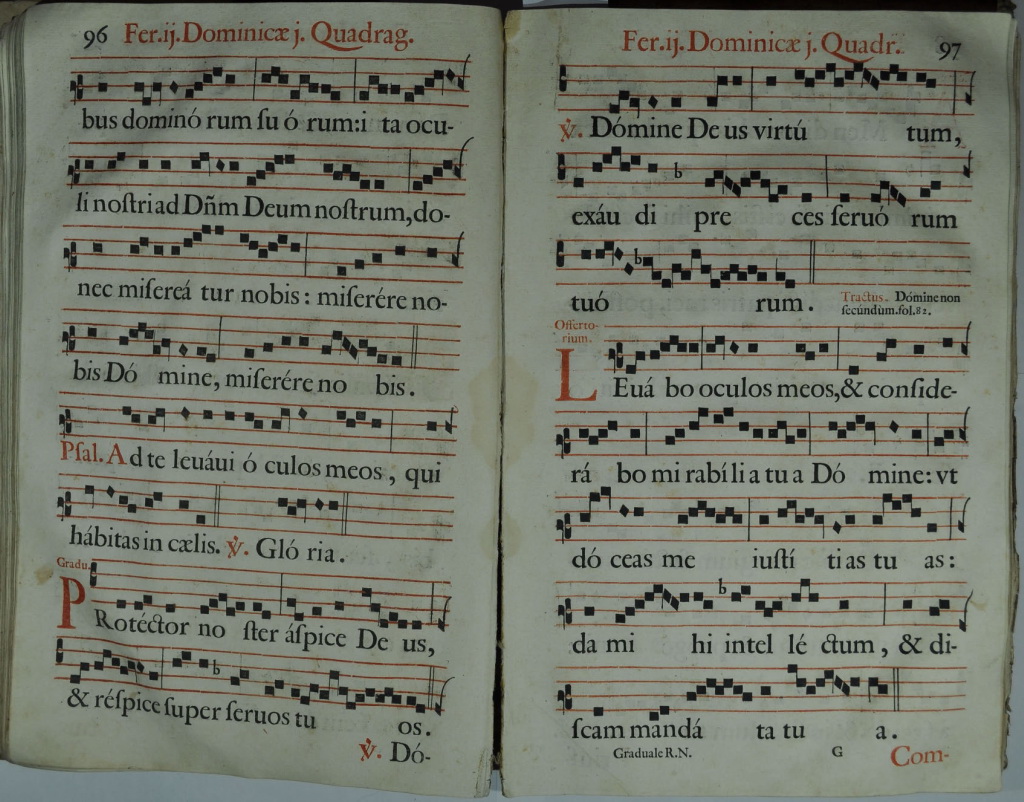 96 Fer.ij.Dominicæ j. Quadrag.
bus dominó rum ſu ó rum:i ta ocu-
li noſtri ad Dñm Deum noſtrum, do-
nec miſereá tur nobis: miſerére no-
bis Dó mine, miſerére no bis.
Pſal. Ad te leuáui ó culos meos, qui
hábitas in cælis. ℣. Gló ria.
Gradu.
PRotéctor no ſter áſpice De us,
& réſpice ſuper ſeruos tu os.
℣. Dó-
Fer.ij.Dominicæ j. Quadr. 97
℣. Dómine De us virtú tum,
exáu di pre ces ſeruó rum
tuó rum. Tractus. Dómine non
ſecúndùm.fol.82.
Offerto-
rium.
LEuá bo oculos meos,& conſide-
rá bo mi rabíli a tu a Dó mine: vt
dó ceas me iuſtí ti as tu as:
da mi hi intel lé ctum, & di-
ſcam mandá ta tu a.
Graduale R.N. G Com-